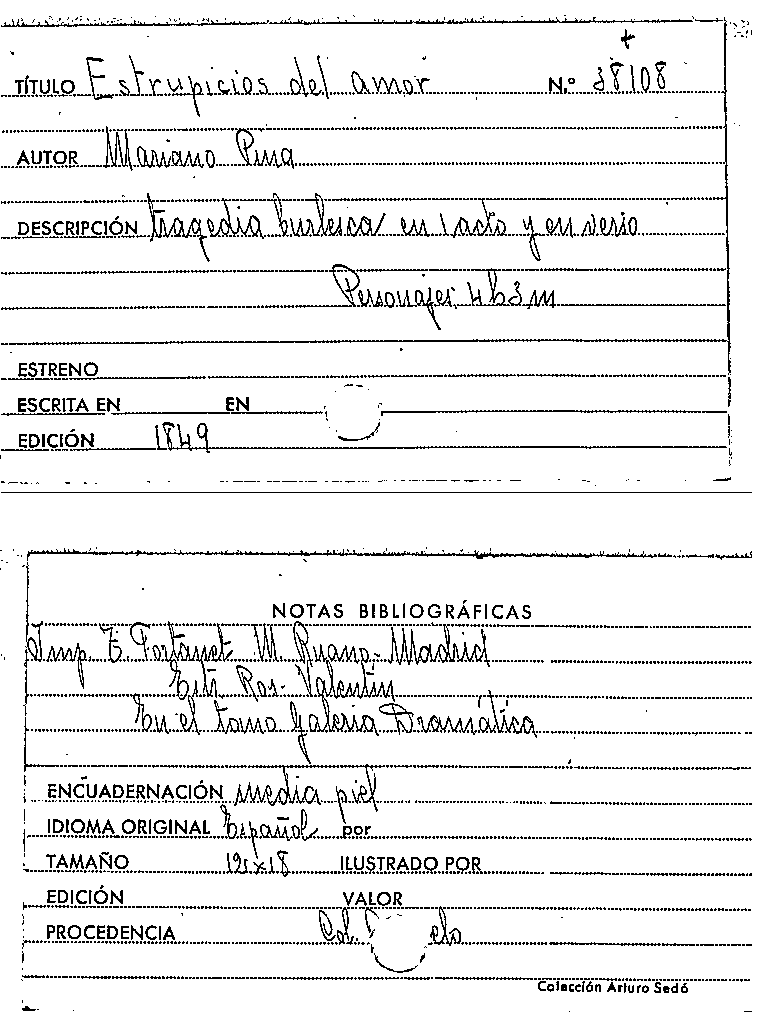 +
TÍTULO Estrupicios del amor N.º 38108
AUTOR Mariano Pina
DESCRIPCIÓN tragedia burlesca en 1 acto y en verso
Personajes: 4 h 3 m
ESTRENO
ESCRITA EN EN
EDICIÓN 1849
NOTAS BIBLIOGRÁFICAS
Imp. Fortanet M. Ruano - Madrid
Ros - Valentín
En el tomo galeria Dramática
ENCUADERNACIÓN media piel
IDIOMA ORIGINAL Español por
TAMAÑO ILUSTRADO POR
EDICIÓN VALOR
PROCEDENCIA Col.
Colección Arturo Sedó